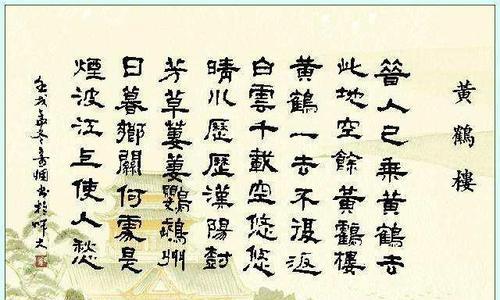 黃鶴樓
昔人已乘黃鶴去
此地空餘黃鶴樓
黃鶴一去不復返
白雲千載空悠悠
晴川歷歷漢陽樹
芳草萋萋鸚鵡州
日暮鄉關何處是
煙波江上使人愁
壬戌年冬